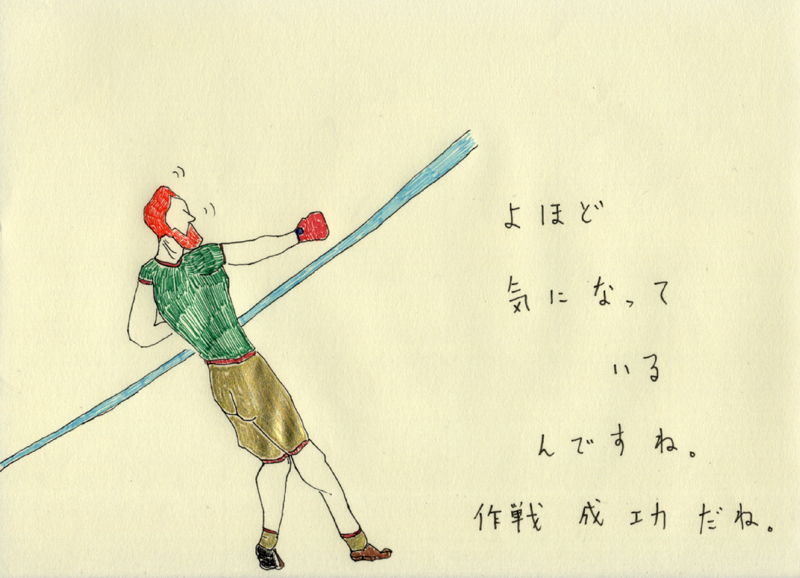 よほど
気になって
いる
んですね。
作戦成功だね。